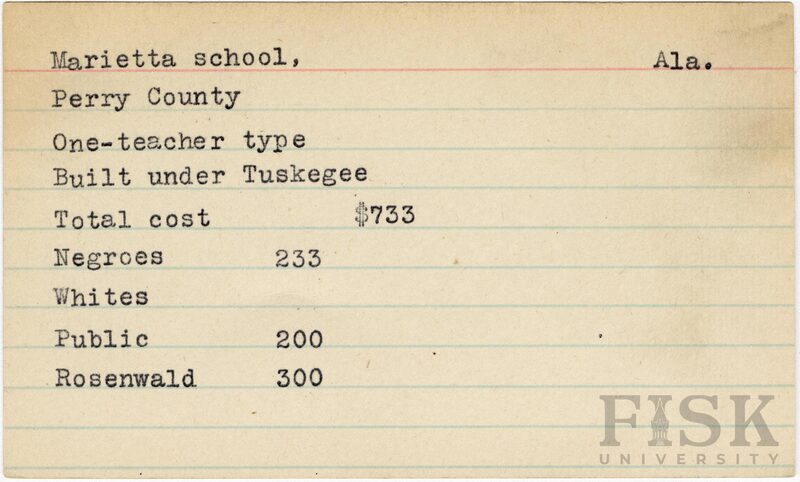 Marietta school, Ala.
Perry County
One-teacher type
Built under Tuskegee
Total cost $733
Negroes 233
Whites
Public 200
Rosenwald 300
FISK
UNIVERSITY